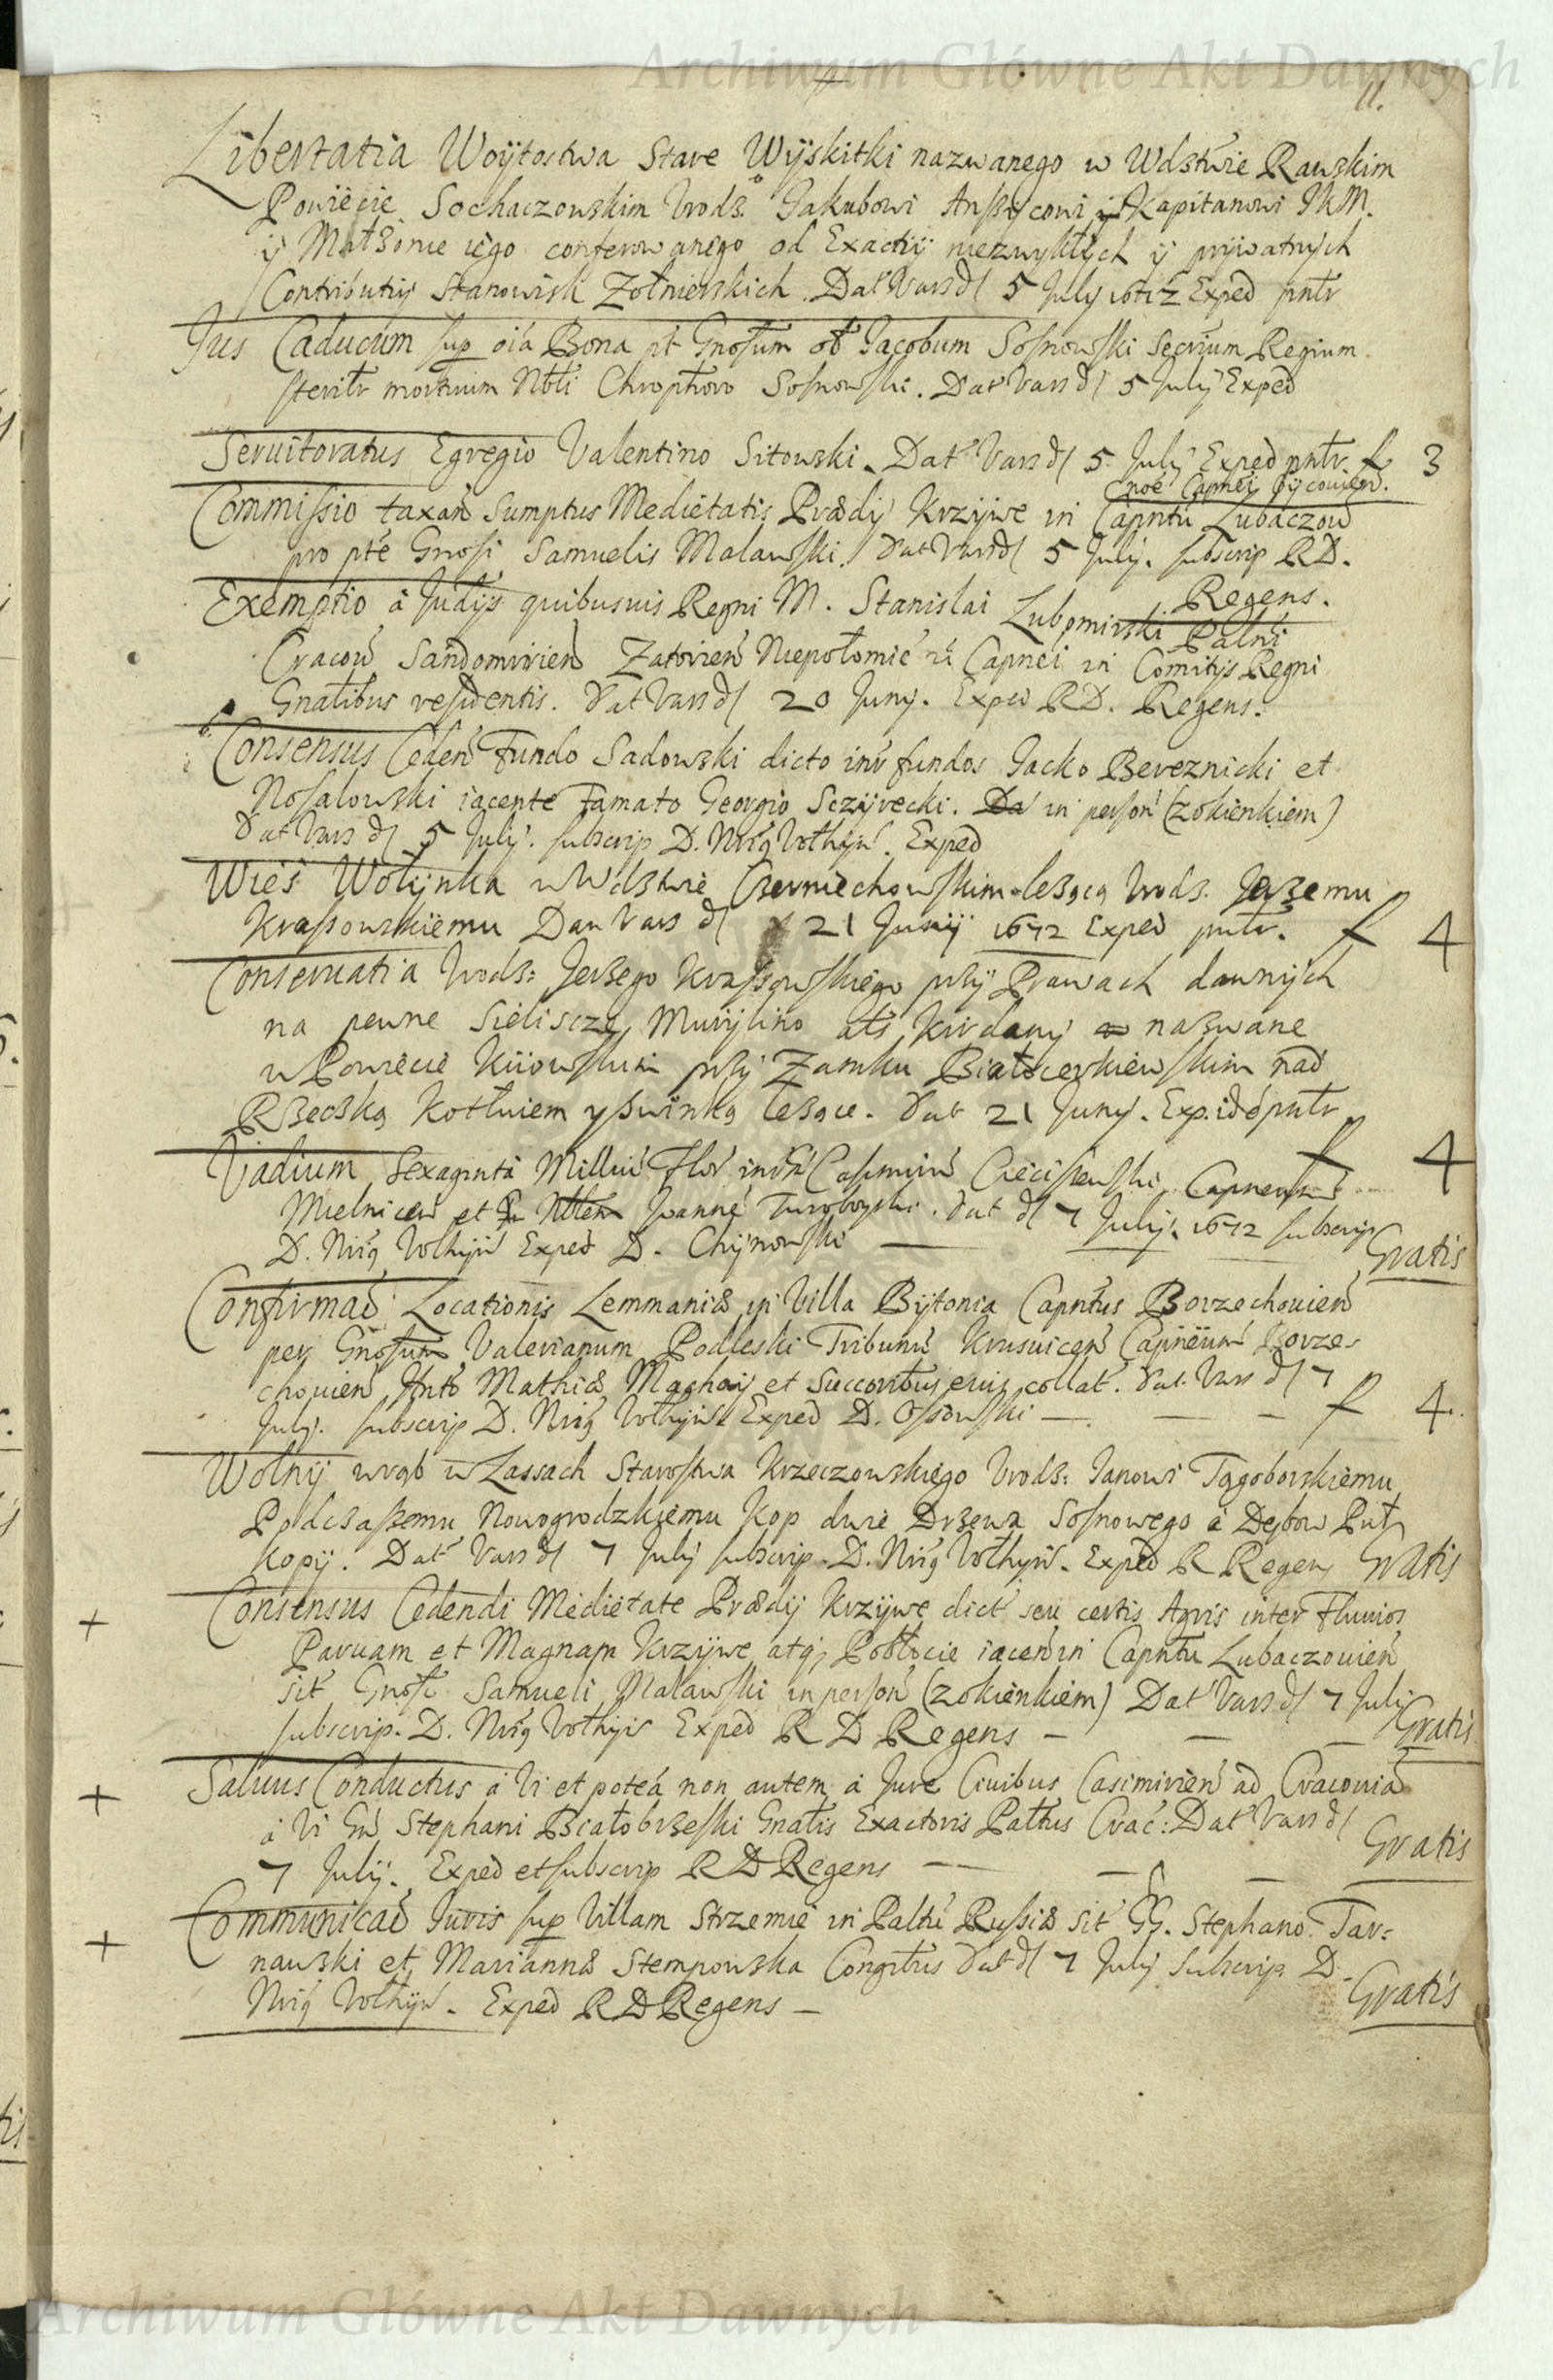 Archiwum Główne Akt Dawnych
11.
Libertatia Woÿtostwa Stare Wÿskitki nazwanego w Wdztwie Rawskim
Powiecie Sochaczowskim Vrodz. Jakubowi Kapitanowi JKM.
ÿ Małżonce iego conferowanego od Exactÿ niezwykłÿch ÿ prÿwatnÿch
Contributiÿ Stanowisk Zołnierskich. Dat Vars d 5 Julÿ 1672 Exped pntr
Jus Caducum sup oia Bona pt Gnosum ol Jacobum Sosnowski Secrium Regium
sterilr mortuum Nbli Chrophoro Sosnowski. Dat Vars d 5 Julÿ Exped
Seruitoratus Egregio Valentino Sitowski. Dat Vars d 5 Julÿ Exped pntr. f 3
noe Capnei
Commissio taxan Sumptus Medietatis Prædÿ Krzÿwe in Capntu Lubaczow
pro pte Gnosi Samuelis Malawski. Dat Vars d 5 Julÿ. subscrip RD.
Regens.
Exemptio à Judÿs quibusuis Regni M. Stanislai Lubomirski Palni
Cracow Sandomirien Zatorien Niepołomic Capnei in Comitÿs Regni
Gnalibus residentis. Dat Vars d 20 Junÿ. Exped RD. Regens.
Consensus Ceden Fundo Sadowski dicto intr fundos Jacko Bereznicki et
Nosalowski iacente Famato Georgio Sczÿrecki. Da in person (zokienkiem)
Dat Vars d 5 Julÿ. subscrip D. Nrig Vołhÿn. Exped
Wieś Wolÿnka w Wdztwie Czerniechowskim leżącą Vrodz. Jerzemu
Krassowskiemu Dan Vars d 21 Junÿ 1672 Exped pntr. f 4
Conseruatia Vrodz: Jerzego Krassowskiego przÿ Prawach dawnÿch
na pewne Sielisczę Murÿlino als Kirdanÿ nazwane
w Powiecie Kiiowskim przÿ Zamku Białocerkiewskim nad
Rzeczką Kotłuiem y Swinką leżące. Dat 21 Junÿ. Exped pntr
f 4
Vadium Sexaginta Milliu Flor intr Casimiru Cieciszewski Capneum
Mielnicen et Joanne Turoboyski. Dat d 7 Julÿ. 1672 subscrip
D. Nrig Vołhÿn Exped D. Chÿnowski — Gratis
Confirmao Locationis Lemmaniæ in Villa Bÿtonia Capntus Borzechouien
per Gnosum Valerianum Podleski Tribunu Krusuicen Capneum Borze-
chouien Hnto Mathiæ Machaÿ et Succoribus eius collat. Dat. Vars d 7
Julÿ. subscrip D. Nrig Vołhÿn. Exped D. Ossowski — — — f 4.
Wolnÿ wrąb w Lassach Starostwa Krzeczowskiego Vrodz: Janowi Tęgoborskiemu
Podczaszemu Nowogrodzkiemu Kop dwie Drzewa Sosnowego à Dębow Puł
kopÿ. Dat Vars d 7 Julÿ subscrip. D. Nrig Vołhyn. Exped R Regens Gratis
+ Consensus Cedendi Medietate Prædÿ Krzÿwe dict seu certis Agris inter Fluuios
Paruam et Magnam Krzÿwe atq Połłocie iacen in Capntu Lubaczouien
sit Gnosi Samueli Malawski in person (zokienkiem) Dat Vars d 7 Julÿ
subscrip. D. Nrig Vołhÿn Exped R D Regens — — — Gratis
+ Saluus Conductus à Vi et potea non autem à Jure Ciuibus Casimirien ad Cracouia
à Vi Gn Stephani Białobrzeski Gnalis Exactoris Paltus Crac: Dat Vars d
7 Julÿ. Exped et subscrip R D Regens — — — Gratis
+ Communicao Juris sup Villam Strzemie in Paltu Russiæ sit GG. Stephano Tar=
nawski et Mariannæ Stempowska Congibus Dat d 7 Julÿ Subscrip D.
Nrig Vołhÿn. Exped R D Regens — Gratis
Archiwum Główne Akt Dawnych